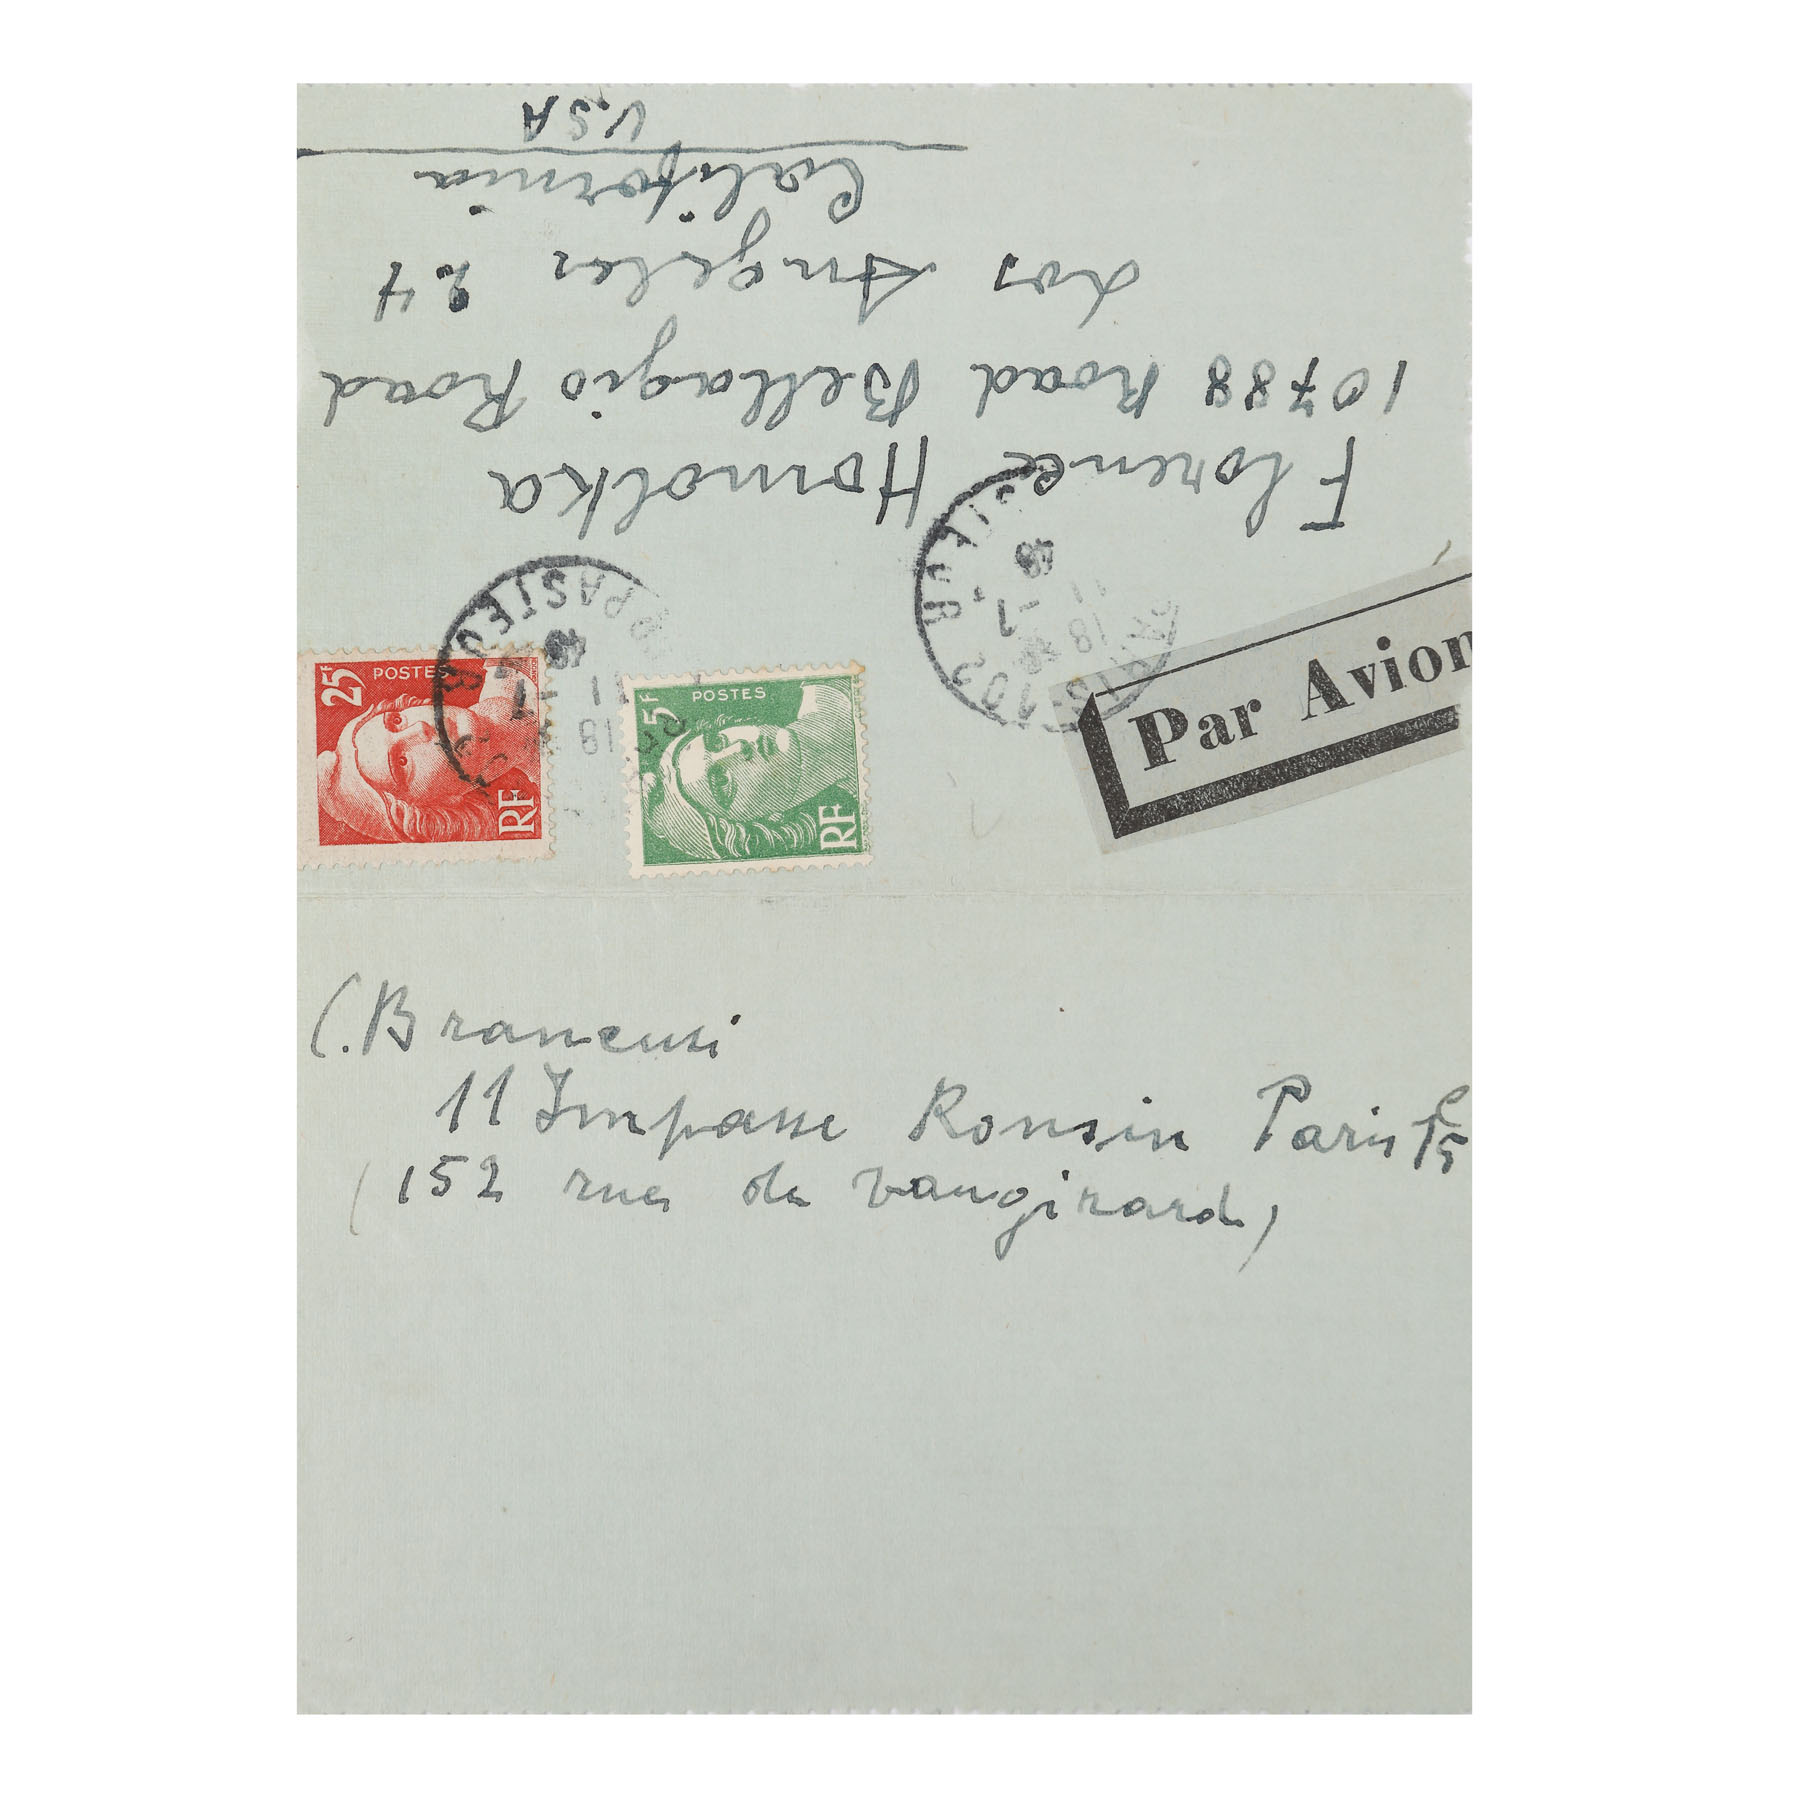 Florence Homolka
10788 Road Bellagio Road
Los Angeles 24
California
U.S.A
25F POSTES RF
5F POSTES RF
PASTEUR
18
11
PARIS 102
18
11
Par Avion
C. Brancusi
11 Impasse Ronsin Paris 15e
(152 rue de Vaugirard)